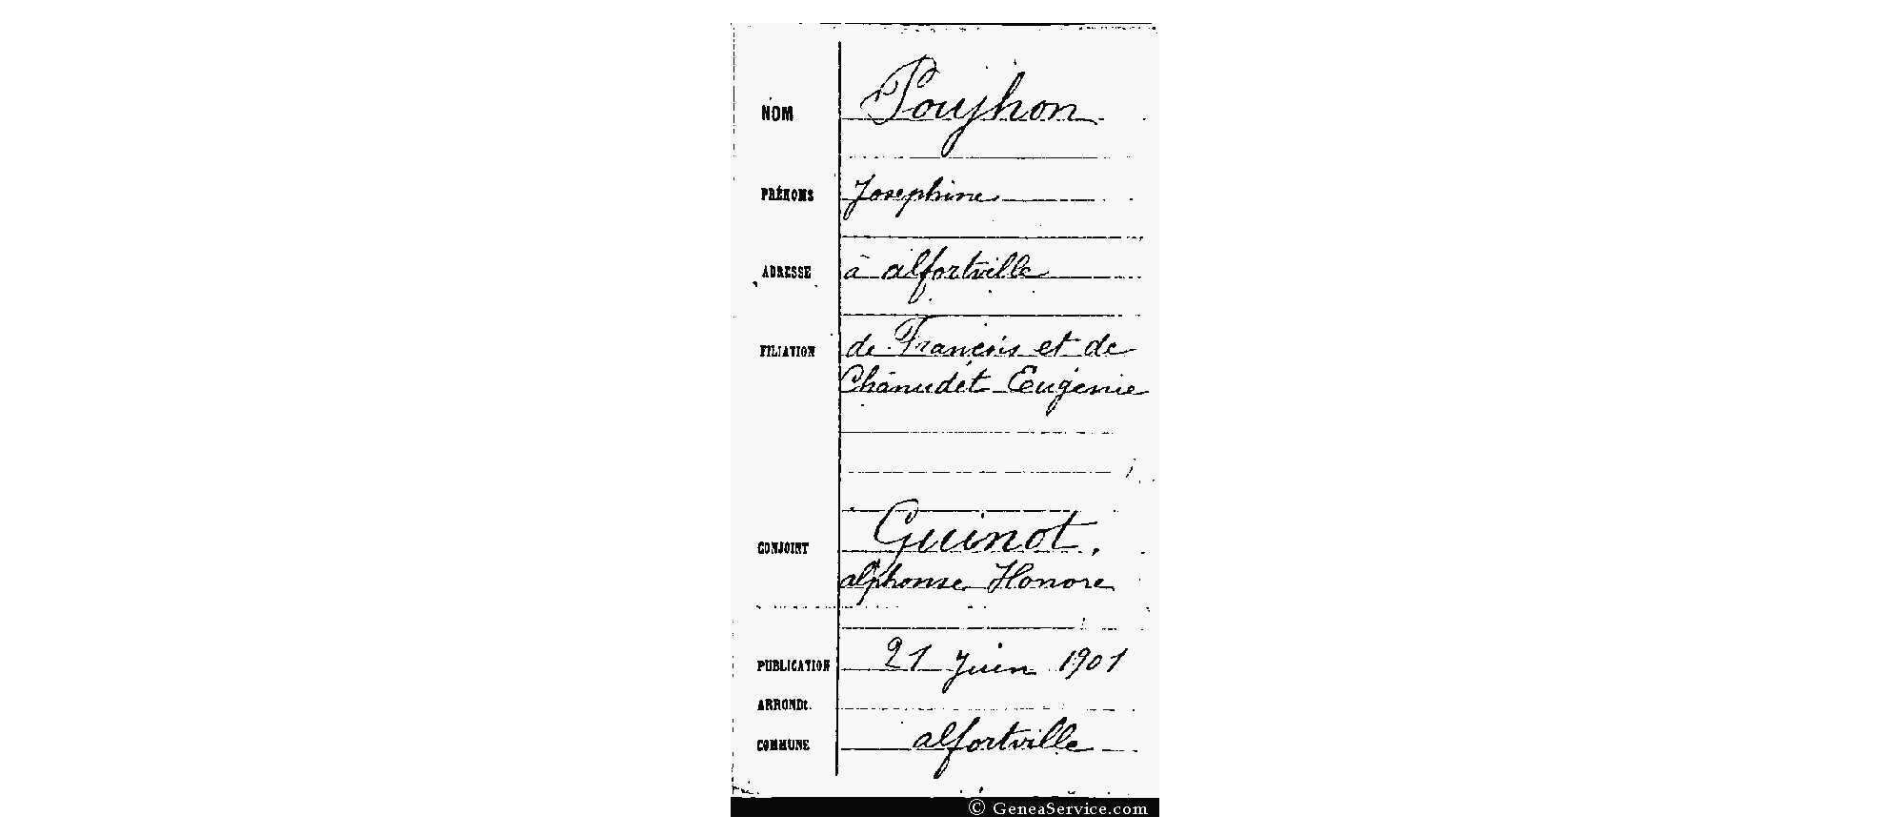 NOM Poujhon
PRÉNOMS Josephine
ADRESSE à alfortville
FILIATION de François et de
Chanudet Eugénie
CONJOINT Guinot,
alphonse Honore
PUBLICATION 21 Juin 1901
ARRONDt.
COMMUNE alfortville
© GeneaService.com